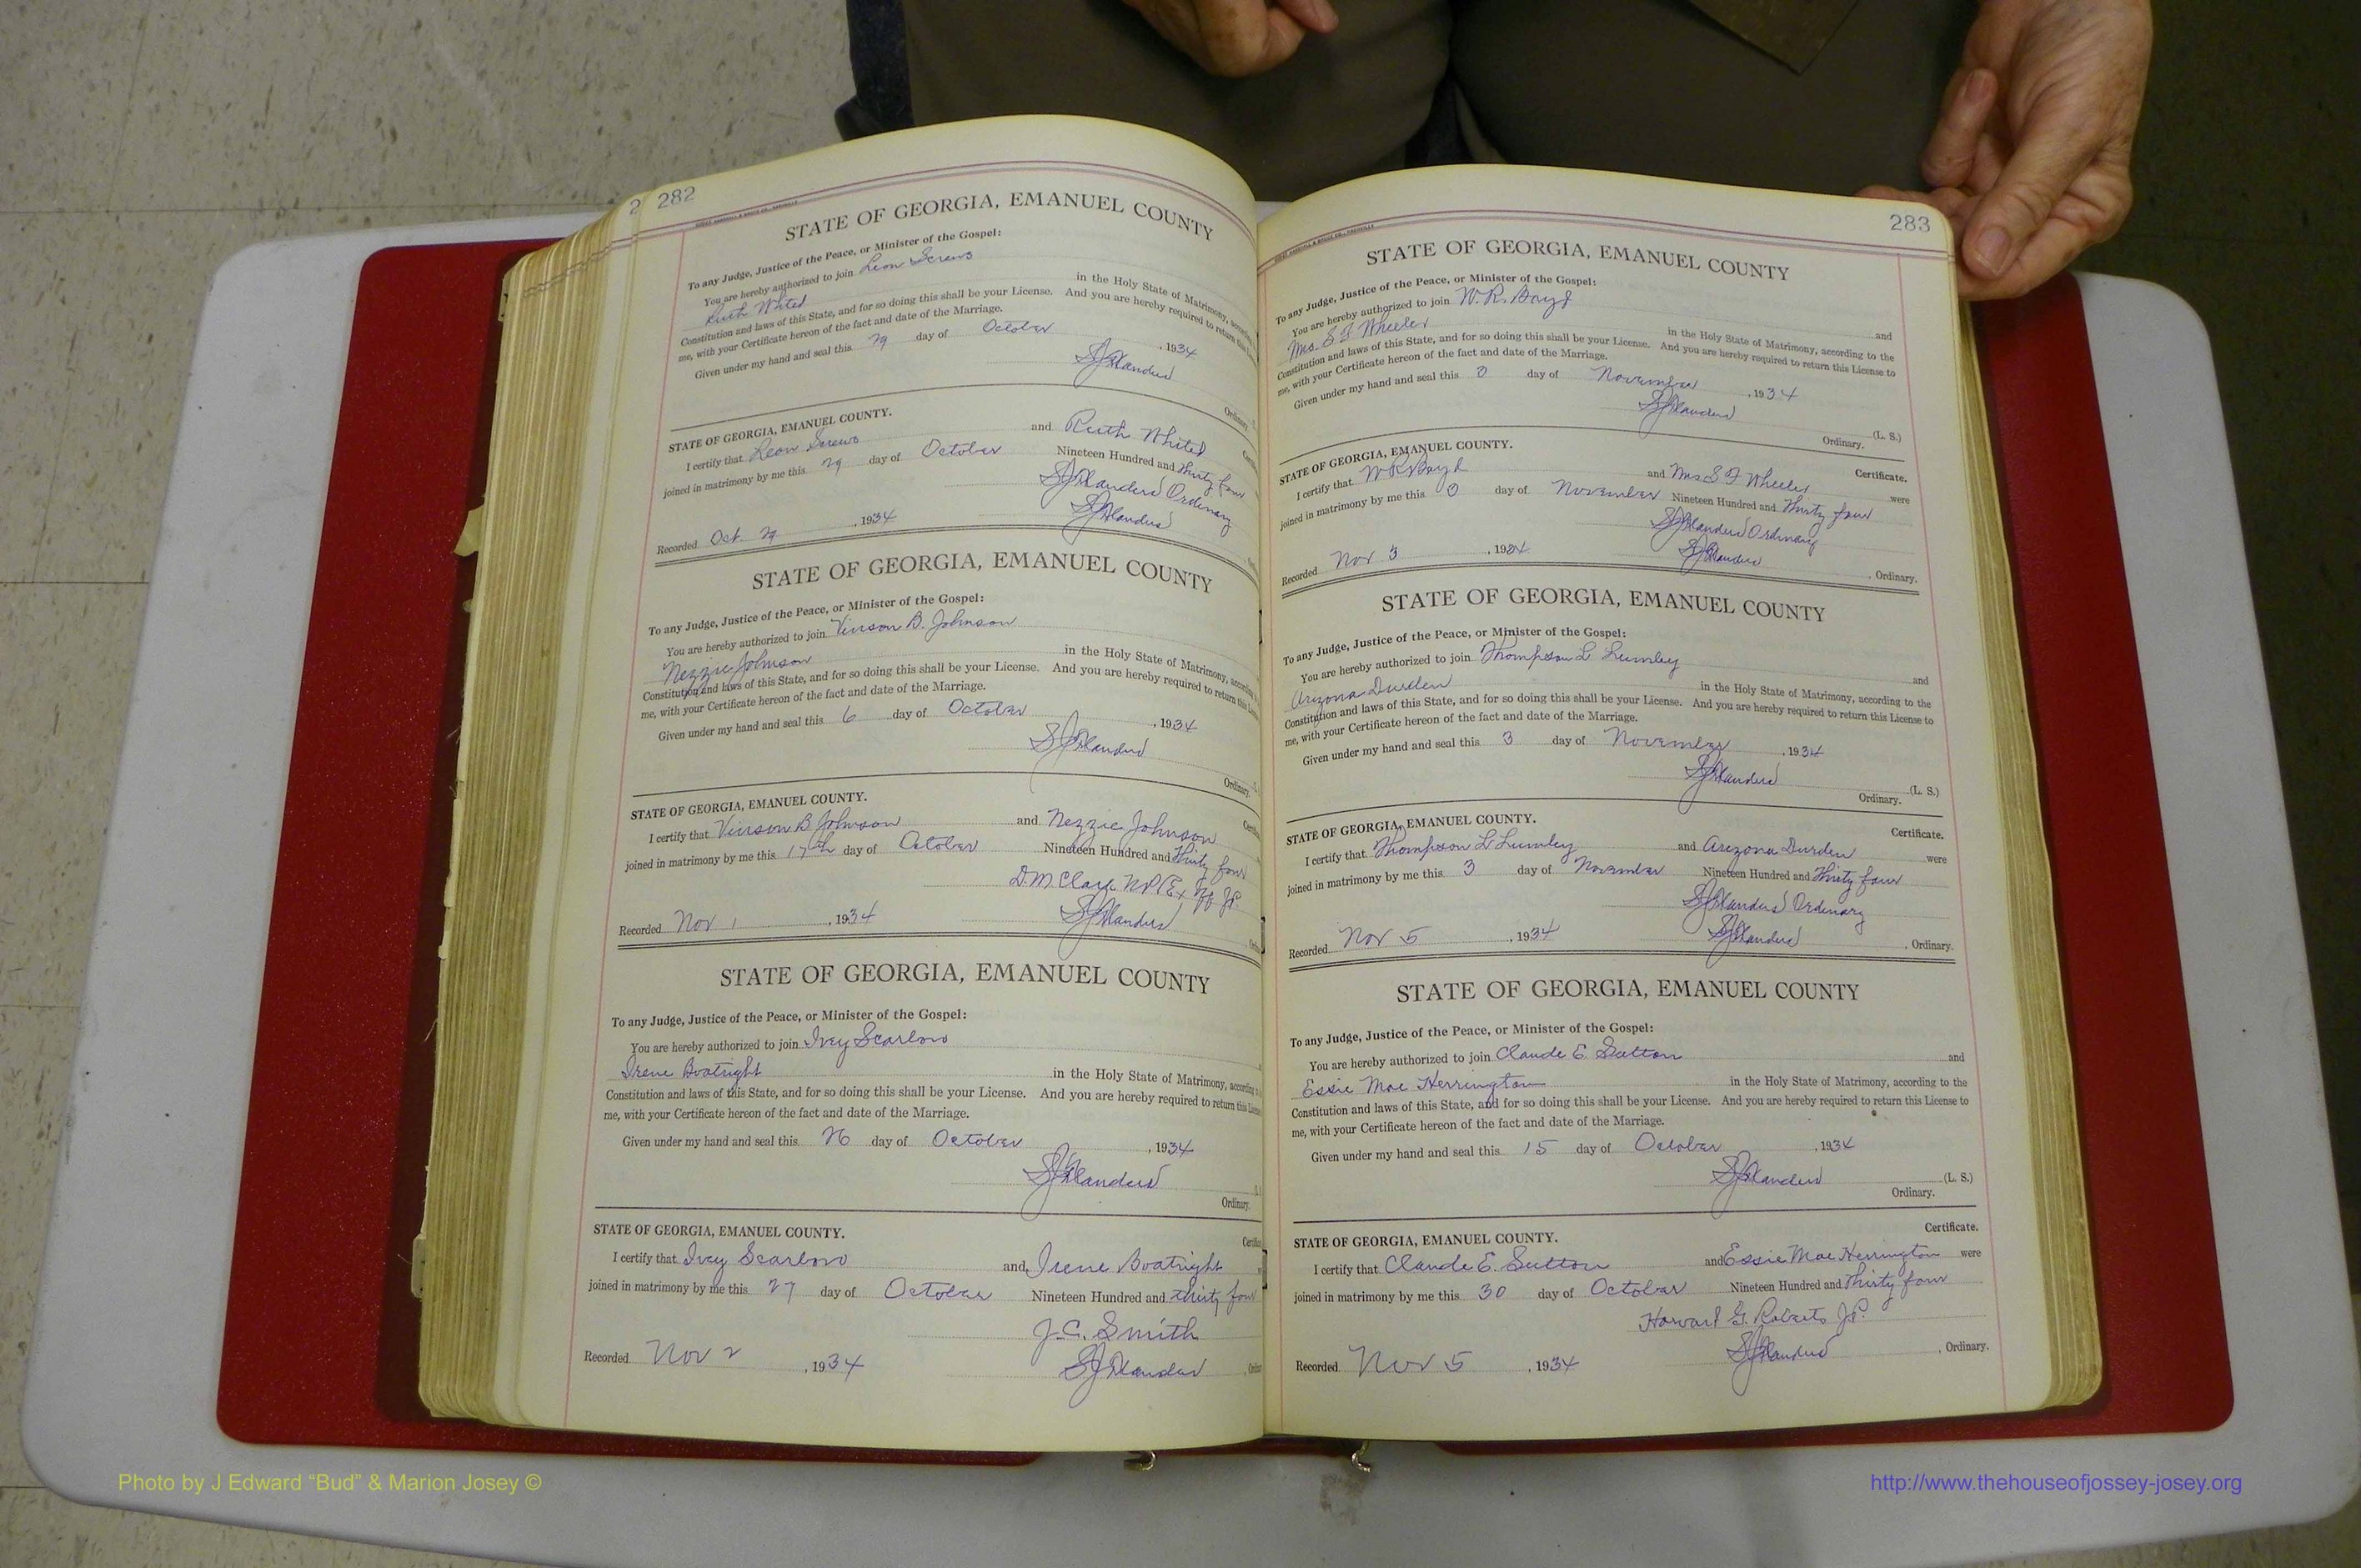 282
STATE OF GEORGIA, EMANUEL COUNTY
To any Judge, Justice of the Peace, or Minister of the Gospel:
You are hereby authorized to join Leon Screws
Ruth Whited in the Holy State of Matrimony,
Constitution and laws of this State, and for so doing this shall be your License. And you are hereby required to return this
me, with your Certificate hereon of the fact and date of the Marriage.
Given under my hand and seal this 29 day of October, 1934
SJFlanders
Ordinary.
STATE OF GEORGIA, EMANUEL COUNTY.
I certify that Leon Screws and Ruth Whited
joined in matrimony by me this 29 day of October Nineteen Hundred and Thirty four
SJFlanders Ordinary
Recorded Oct. 29, 1934 SJFlanders
STATE OF GEORGIA, EMANUEL COUNTY
To any Judge, Justice of the Peace, or Minister of the Gospel:
You are hereby authorized to join Vinson B. Johnson
Nezzie Johnson in the Holy State of Matrimony,
Constitution and laws of this State, and for so doing this shall be your License. And you are hereby required to return this
me, with your Certificate hereon of the fact and date of the Marriage.
Given under my hand and seal this 6 day of October, 1934
SJFlanders
Ordinary.
STATE OF GEORGIA, EMANUEL COUNTY.
I certify that Vinson B Johnson and Nezzie Johnson
joined in matrimony by me this 17th day of October Nineteen Hundred and Thirty four
D.M. Clark NP Ex Off JP.
Recorded Nov 1, 1934 SJFlanders
STATE OF GEORGIA, EMANUEL COUNTY
To any Judge, Justice of the Peace, or Minister of the Gospel:
You are hereby authorized to join Ivey Scarboro
Irene Boatright in the Holy State of Matrimony, according
Constitution and laws of this State, and for so doing this shall be your License. And you are hereby required to return this
me, with your Certificate hereon of the fact and date of the Marriage.
Given under my hand and seal this 26 day of October, 1934
SJFlanders
Ordinary.
STATE OF GEORGIA, EMANUEL COUNTY.
I certify that Ivey Scarboro and Irene Boatright
joined in matrimony by me this 27 day of October Nineteen Hundred and thirty four
J.C. Smith
Recorded Nov 2, 1934 SJFlanders
283
STATE OF GEORGIA, EMANUEL COUNTY
To any Judge, Justice of the Peace, or Minister of the Gospel:
You are hereby authorized to join W.R. Boyd and
Mrs. S F Wheeler in the Holy State of Matrimony, according to the
Constitution and laws of this State, and for so doing this shall be your License. And you are hereby required to return this License to
me, with your Certificate hereon of the fact and date of the Marriage.
Given under my hand and seal this 3 day of November, 1934
SJFlanders (L. S.)
Ordinary.
STATE OF GEORGIA, EMANUEL COUNTY. Certificate.
I certify that W R Boyd and Mrs S F Wheeler were
joined in matrimony by me this 3 day of November Nineteen Hundred and Thirty four
SJFlanders Ordinary
Recorded Nov 3, 1934 SJFlanders, Ordinary.
STATE OF GEORGIA, EMANUEL COUNTY
To any Judge, Justice of the Peace, or Minister of the Gospel:
You are hereby authorized to join Thompson L Lumley and
Arizona Durden in the Holy State of Matrimony, according to the
Constitution and laws of this State, and for so doing this shall be your License. And you are hereby required to return this License to
me, with your Certificate hereon of the fact and date of the Marriage.
Given under my hand and seal this 3 day of November, 1934
SJFlanders (L. S.)
Ordinary.
STATE OF GEORGIA, EMANUEL COUNTY. Certificate.
I certify that Thompson L Lumley and Arizona Durden were
joined in matrimony by me this 3 day of November Nineteen Hundred and Thirty four
SJFlanders Ordinary
Recorded Nov 5, 1934 SJFlanders, Ordinary.
STATE OF GEORGIA, EMANUEL COUNTY
To any Judge, Justice of the Peace, or Minister of the Gospel:
You are hereby authorized to join Claude E. Sutton and
Essie Mae Herrington in the Holy State of Matrimony, according to the
Constitution and laws of this State, and for so doing this shall be your License. And you are hereby required to return this License to
me, with your Certificate hereon of the fact and date of the Marriage.
Given under my hand and seal this 15 day of October, 1934
SJFlanders (L. S.)
Ordinary.
STATE OF GEORGIA, EMANUEL COUNTY. Certificate.
I certify that Claude E. Sutton and Essie Mae Herrington were
joined in matrimony by me this 30 day of October Nineteen Hundred and Thirty four
Howard G. Roberts JP.
Recorded Nov 5, 1934 SJFlanders, Ordinary.
Photo by J Edward “Bud” & Marion Josey ©
http://www.thehouseofjossey-josey.org